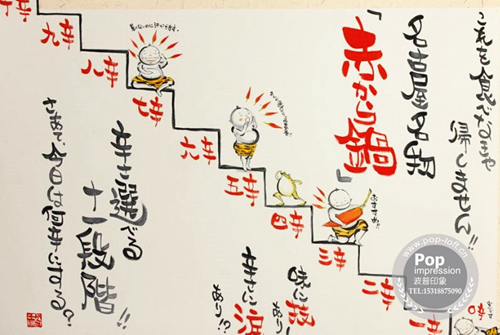 これを食べなきゃ
帰しません!!
名古屋名物
「赤から鍋」
おすすめ!!
味に
辛さに
あり!?
辛さ選べる
十一段階!!
さあて、今日は何辛にする?
十辛
九辛
八辛
七辛
六辛
五辛
四辛
三辛
二辛
一辛
www.pop-loft.cn
Pop
impression
波普印象
TEL:15318875090